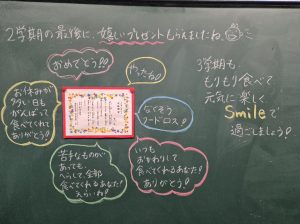 2学期の最後に、嬉しいプレゼントもらえましたね。
おめでとう!!
やったね!
お休みが
多い日も
がんばって
食べてくれて
ありがとう!
なくそう
フードロス!
苦手なものが
あっても
へらして全部
食べてくれるあなた!
えらいね!
いつも
おかわりして
食べてくれるあなた!
ありがとう!
3学期も、
もりもり食べて
元気に楽しく
Smileで
過ごしましょう!